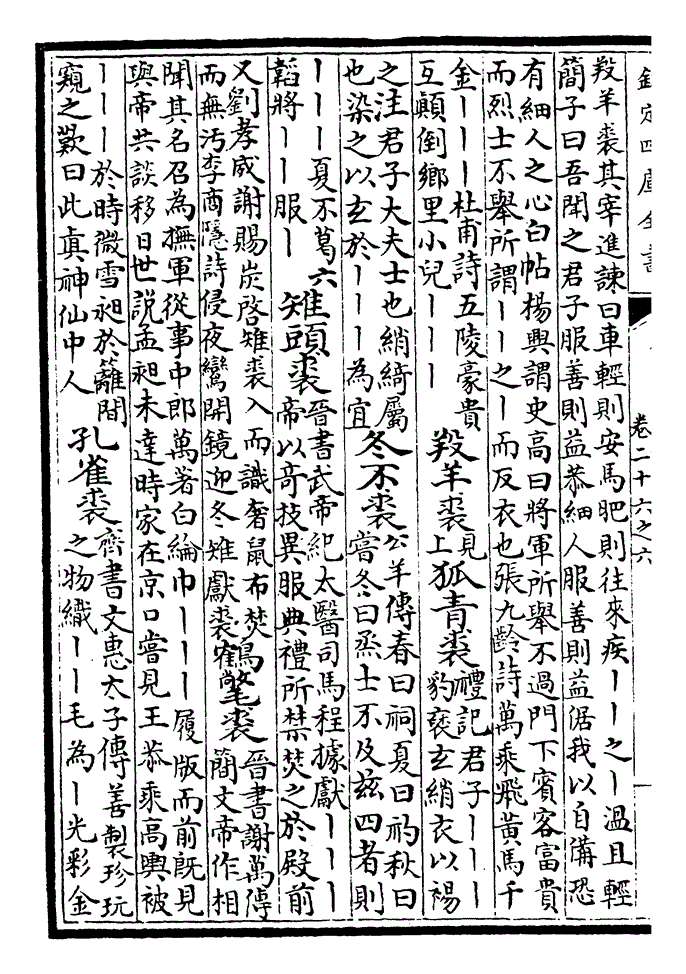 欽定四庫全書
卷二十六之六
羖羊裘其宰進諫曰車輕則安馬肥則往來疾丨丨之丨溫且輕
簡子曰吾聞之君子服善則益恭細人服善則益倨我以自備恐
有細人之心白帖楊興謂史高曰將軍所舉不過門下賓客富貴
而烈士不舉所謂丨丨之丨而反衣也張九齡詩萬乘飛黃馬千
金丨丨丨杜甫詩五陵豪貴
互顛倒鄉里小兒丨丨丨
羖羊裘見
上
狐青裘禮記君子丨丨丨
豹褎玄綃衣以裼
之注君子大夫士也綃綺屬
也染之以玄於丨丨丨為宜
冬不裘公羊傳春曰祠夏曰礿秋曰
嘗冬曰烝士不及兹四者則
丨丨丨夏不葛
六
韜將丨丨服丨
雉頭裘晉書武帝紀太醫司馬程據獻丨丨丨
帝以奇技異服典禮所禁焚之於殿前
又劉孝威謝賜炭啓雉裘入而識奢鼠布焚
而無汚李商隱詩侵夜鸞開鏡迎冬雉獻裘
鶴氅裘晉書謝萬傳
簡文帝作相
聞其名召為撫軍從事中郎萬著白綸巾丨丨丨履版而前既見
與帝共談移日世說孟昶未達時家在京口嘗見王恭乘高輿被
丨丨丨於時微雪昶於籬間
窺之歎曰此真神仙中人
孔雀裘齊書文惠太子傳善製珍玩
之物織丨丨毛為丨光彩金